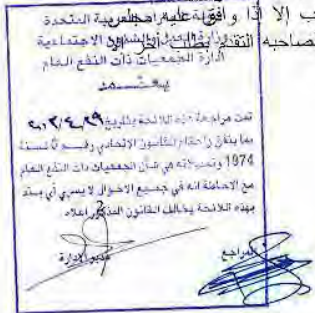 ب إلا إذا وافق عليه مجلس
العربية المتحدة
لصاحبه التقدم بطلب آخر إلا
وزارة العمل والشئون الاجتماعية
ادارة الجمعيات ذات النفع العام
يعتمد
تمت مراجعة هذه اللائحة بتاريخ
بما يتفق واحكام القانون الاتحادي رقم ٦ لسنة
1974 وتعديلاته في شأن الجمعيات ذات النفع العام
مع الاحاطة انه في جميع الاحوال لا يسري أي بند
بهذه اللائحة يخالف القانون المذكور اعلاه
المراجع
مدير الادارة